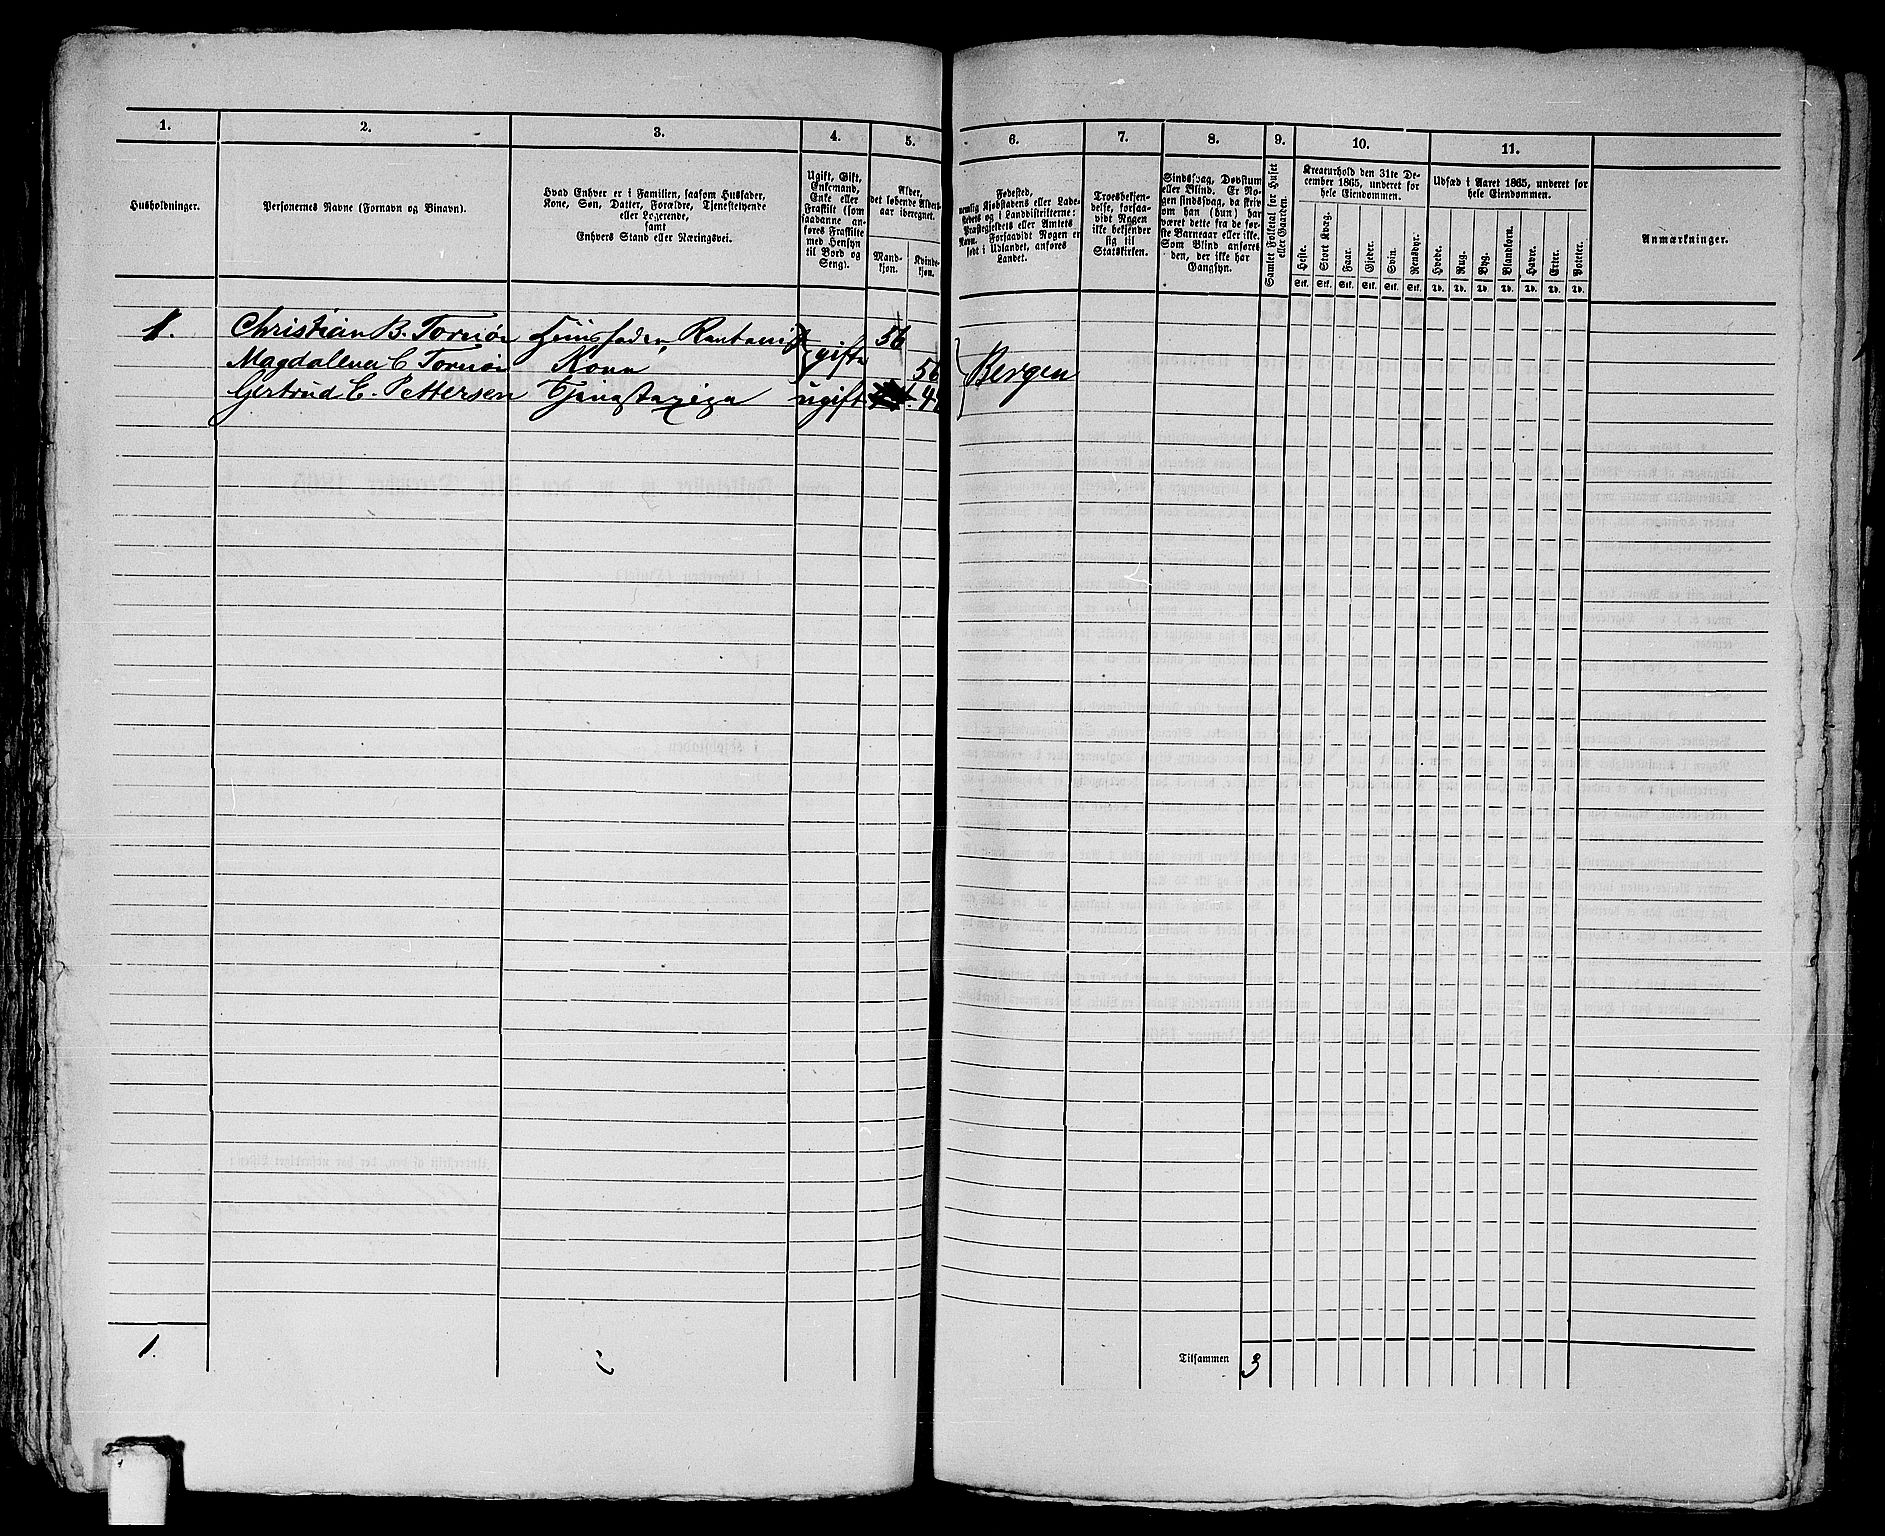 1. 2. 3. 4. 5. 6. 7. 8. 9. 10. 11.
Husholdninger.
Personernes Navne (Fornavn og Binavn).
Hvad Enhver er i Familien, saasom Husfader,
Kone, Søn, Datter, Forældre, Tjenestetyende
eller Logerende,
samt
Enhvers Stand eller Næringsvei.
Ugift, Gift,
Enkemand,
Enke eller
Fraskilt (som
saadanne an-
føres Fraskilte
med Hensyn
til Bord og
Seng).
Alder,
det løbende Alders-
aar iberegnet.
Mand-
kjøn.
Kvinde-
kjøn.
Fødested,
nemlig Kjøbstadens eller Lade-
stedets og i Landdistrikterne:
Præstegjeldets eller Amtets
Navn. Forsaavidt Nogen er
født i Udlandet, anføres
Landet.
Troesbekjen-
delse, forsaa-
vidt Nogen
ikke bekjender
sig til
Statskirken.
Sindssvag, Døvstum
eller Blind. Er No-
gen sindssvag, da skriv
om han (hun) har
været dette fra de før-
ste Barneaar eller ikke.
Som Blind anføres
den, der ikke har
Gangsyn.
Samlet Folketal for Huset
eller Gaarden.
Kreaturhold den 31te De-
cember 1865, underet for
hele Eiendommen.
Heste. Stort Kvæg. Faar. Gjeder. Svin. Rensdyr.
Stk. Stk. Stk. Stk. Stk. Stk.
Udsæd i Aaret 1865, underet for
hele Eiendommen.
Hvede. Rug. Byg. Blandkorn. Havre. Erter. Poteter.
Td. Td. Td. Td. Td. Td. Td.
Anmærkninger.
1. Christian B. Tornøe Huusfader, gift 56
Magdalena C Tornøe Kone 56 Bergen
Gertrud E. Pettersen Tjenestepige ugift
1. Tilsammen 3